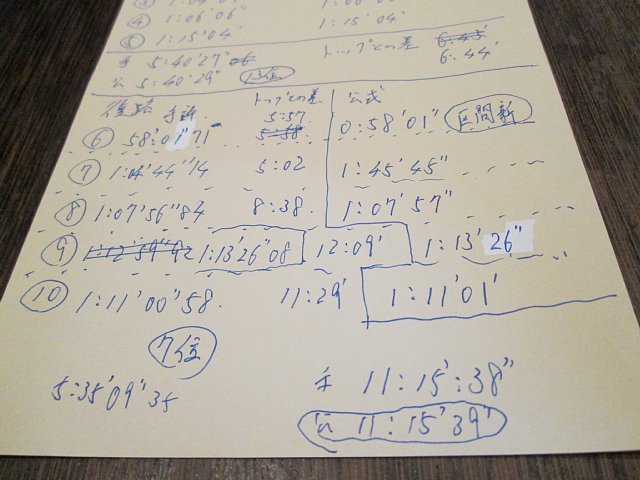 ④ 1:06'06" 1:15'04"
⑤ 1:15'04"
手 5:40'27" トップとの差 6:45'
公 5:40'29" 13位 6:44'
復路 手計 トップとの差 公式
5:57
⑥ 58'01"71 5:58 0:58'01" 区間新
⑦ 1:04'44"14 5:02 1:45'45"
⑧ 1:07'56"84 8:38. 1:07'57"
⑨ 1:12'59"92 1:13'26"08 12:09' 1:13'26"
⑩ 1:11'00"58. 11:29' 1:11'01'
7位
5:35'09'35
手 11:15':38"
公 11:15'39"